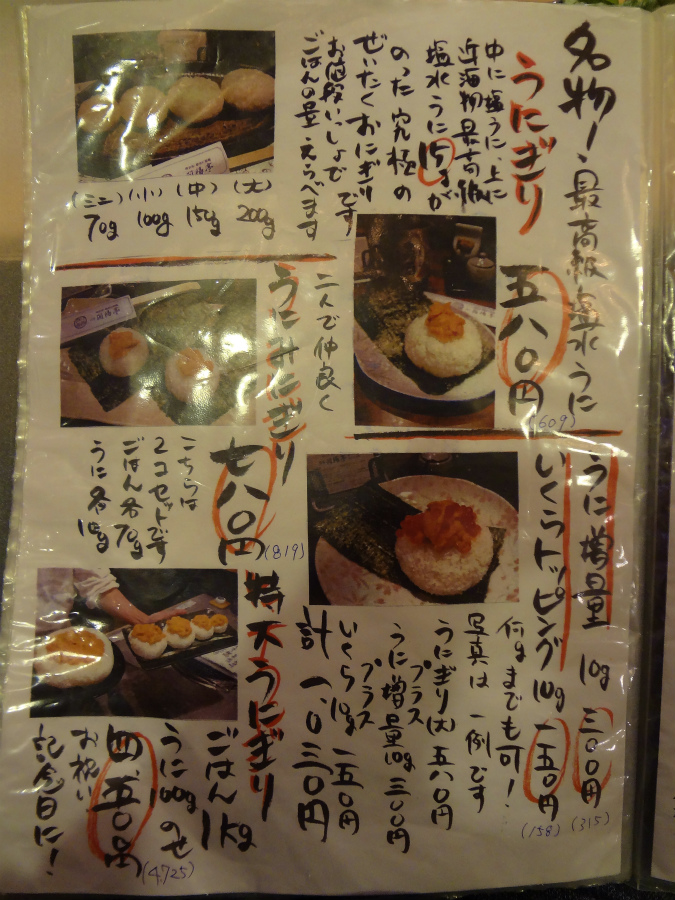 名物!、最高級塩水うに
うにぎり
中に塩うに、上に
近海物最高級
塩水うに15gが
のった究極の
ぜいたくおにぎり
です
お値段いっしょで
ごはんの量・えらべます
(大)
200g
(中)
150g
(小)
100g
(ミニ)
70g
五八〇円
(609)
二人で仲良く
うにみにぎり
七八〇円
(819)
こちらは
2コセットです
ごはん各70g
うに各10g
うに増量 10g 三〇〇円
(315)
いくらトッピング 10g 一五〇円
(158)
何gまでも可!
写真は一例です
うにぎり(大)五八〇円
プラス
うに増量10g 三〇〇円
プラス
いくら10g 一五〇円
計 一、〇三〇円
特大うにぎり
ごはん1kg
うに100gのせ
四、五〇〇円
(4,725)
お祝い
記念日に!